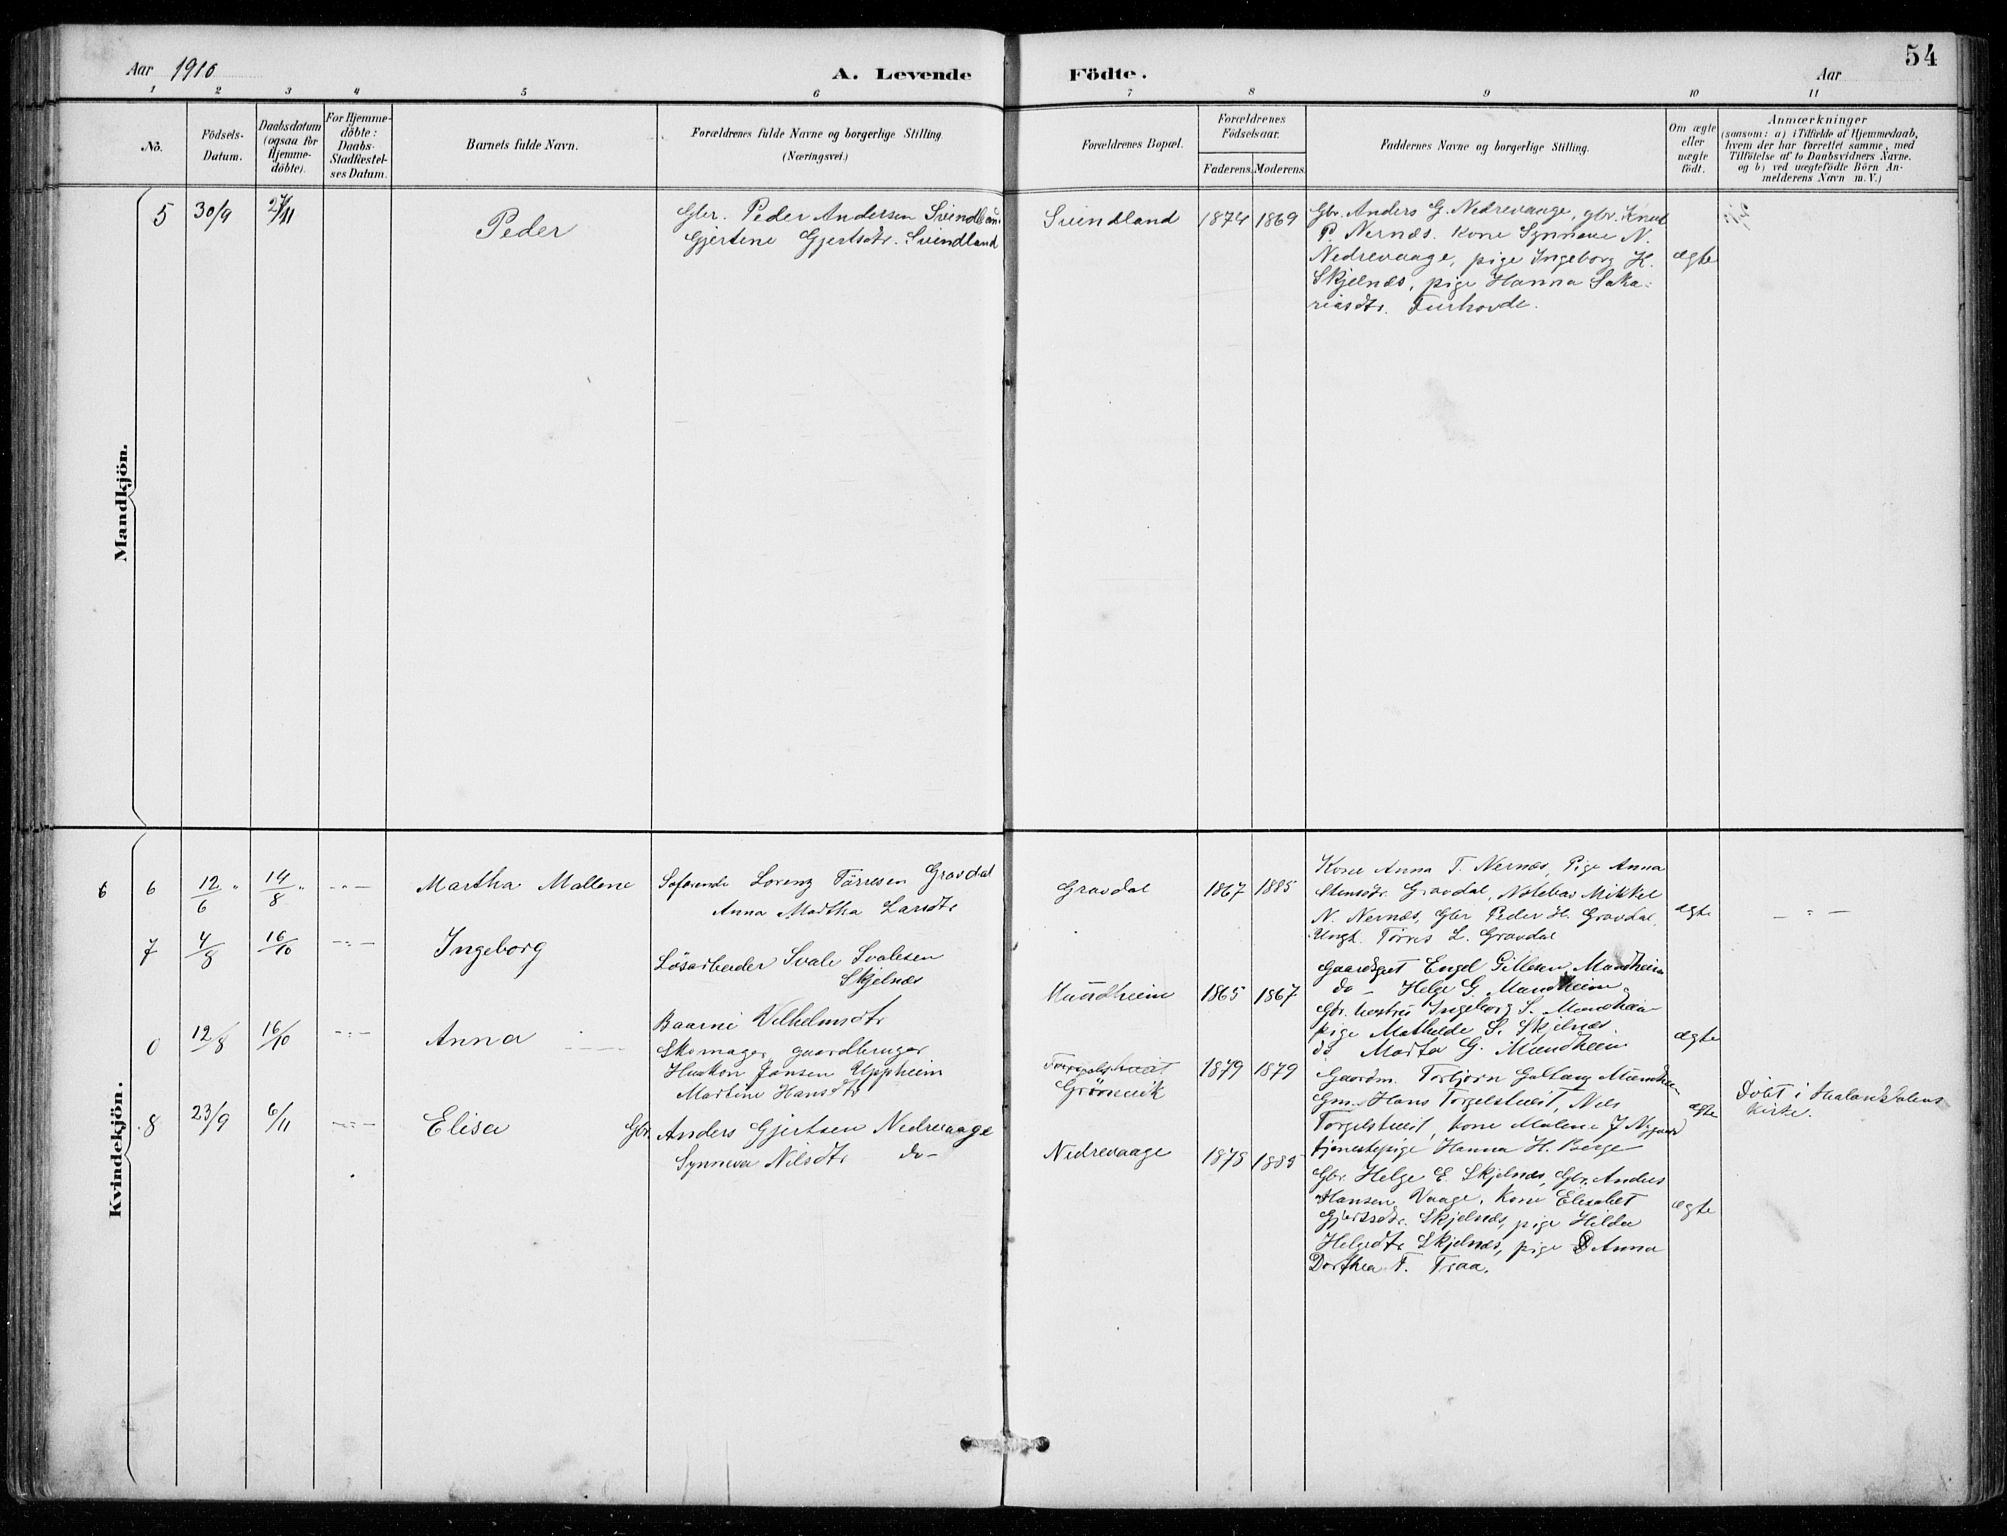 54
Aar 1910
A. Levende
Födte.
Aar
1 2 3 4 5 6 7 8 9 10 11
No.
Födsels-
Datum.
Daabsdatum
(ogsaa for
Hjemme-
döbte).
For Hjemme-
döbte:
Daabs-
Stadfæstel-
ses Datum.
Barnets fulde Navn.
Forældrenes fulde Navne og borgerlige Stilling
(Næringsvei.)
Forældrenes Bopæl.
Forældrenes
Födselsaar.
Faderens.
Moderens.
Faddernes Navne og borgerlige Stilling.
Om ægte
eller
uægte
födt.
Anmærkninger
(saasom: a) i Tilfælde af Hjemmedaab,
hvem der har forrettet samme, med
Tilföielse af to Daabsvidners Navne.
og b) ved uægtefödte Börn An-
melderens Navn m. V.)
Mandkjön.
5
30/9
27/11
Peder
Gbr. Peder Andersen Svindland
Gjertine Gjertsdtr. Svindland
Svindland
1874
1869
Gbr. Anders G. Nedrevaage, gbr. Knut
P. Nernæs. Kone Synneve N.
Nedrevaage, pige Ingeborg H.
Skjelnæs, pige Hanna Saka-
riasdtr. Furhovde.
ægte
Kvindekjön.
6
6
12/6
14/8
Martha Mallene
Lorenz Tørresen Gravdal
Anna Martha Larsdtr
Gravdal
1867
1885
Kone Anna T. Nernæs, Pige Anna
Stensdtr. Gravdal, Notebas Mikkel
N. Nernæs, Gbr Peder H. Gravdal,
Ungk. Tørres L. Gravdal
ægte
7
4/8
16/10
Ingeborg
Lösarbeider Svale Svalesen
Skjelnæs
Baarni Vilhelmsdtr
Mundheim
1865
1867
Gaardgut Engel Gillesen Mundheim
do - Helge G. Mundheim
Gbr. hustru Ingeborg S. Mundheim
pige Mathilde S. Skjelnæs.
do Marta G. Mundheim
ægte
0
12/8
16/10
Anna
Skomager, gaardbruger
Haakon Jansen Uppheim
Martine Hansdtr
Torgelstveit
Grönevik
1879
1879
Gaardm. Torbjørn Galtung Mundheim
Gm. Hans Torgelstveit, Nils
Torgelstveit, kone Malene J Nygaard
tjenestepige Hanna H. Berge
ægte
Döbt i Haalandsdalens
kirke.
8
23/9
6/11
Elisa
Gbr. Anders Gjertsen Nedrevaage
Synneva Nilsdtr do-
Nedrevaage
1875
1885
Gbr. Helge E. Skjelnæs, Gbr. Anders
Hansen Vaage, Kone Elisabet
Gjertsdtr. Skjelnæs, pige Hilda
Helgedtr Skjelnæs, pige Anna
Dorthea F. Traa.
ægte